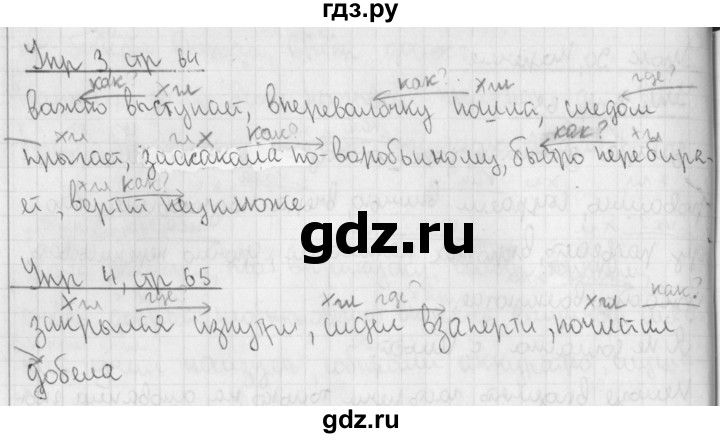 гдз.ру
Упр 3, стр 64
как? х гл как? х гл где?
важно выступает, вперевалочку пошла, следом
х гл гл х как? как? х гл
прыгает, заскакала по-воробьиному, быстро перебира-
х гл как?
ет, вертит неуклюже.
gdz.ru
Упр 4, стр 65
х гл где? х гл где? х гл как?
закрылся изнутри, сидел взаперти, почистил
добела
gdz.ru